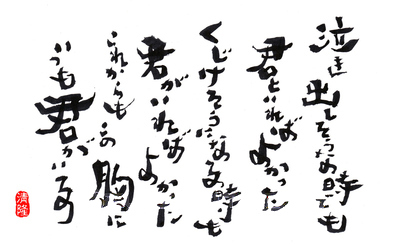 泣き出しそうな時でも
君といればよかった
くじけそうになる時も
君がいればよかった
これからもこの胸に
いつも君がいる